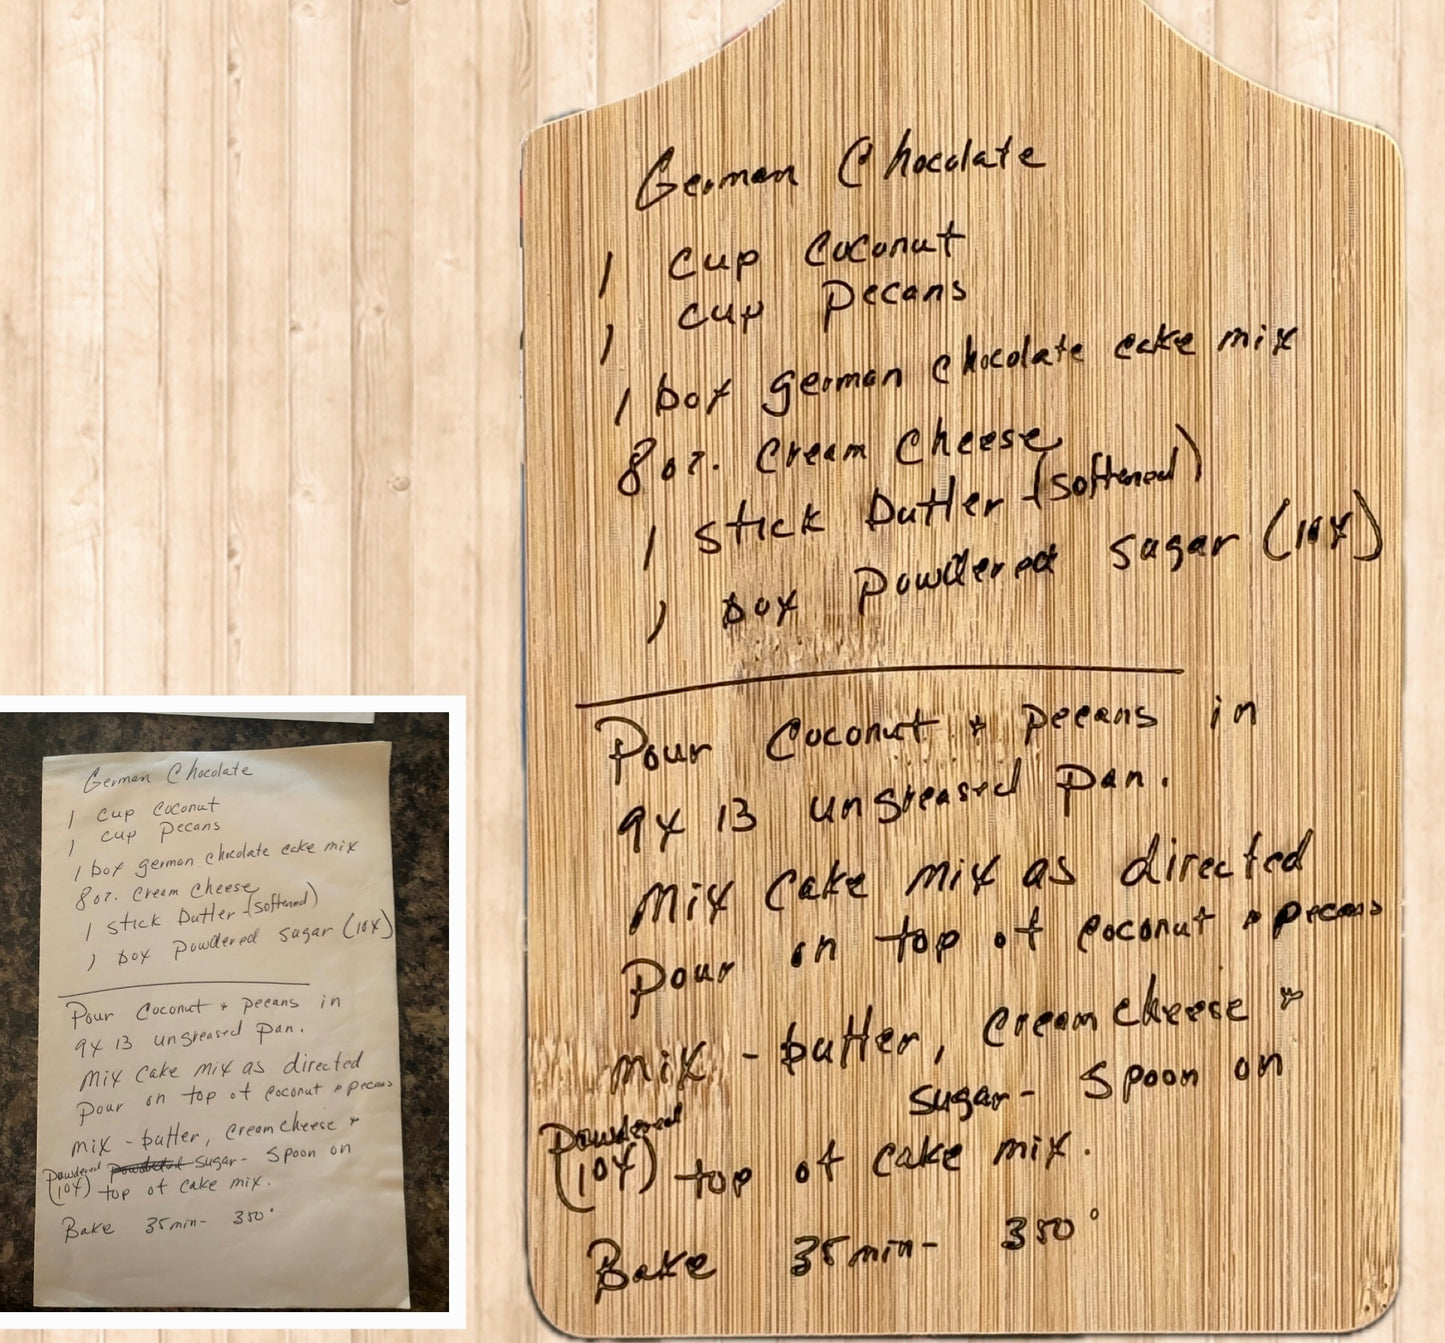 German Chocolate
1 cup Coconut
1 cup Pecans
1 box german chocolate cake mix
8 oz. Cream Cheese
1 stick butter (softened)
1 box Powdered sugar (10X)
Pour Coconut + Pecans in
9x13 ungreased Pan.
Mix Cake mix as directed
Pour on top of coconut + pecans
mix - butter, cream cheese +
Powdered sugar - Spoon on
(10X) top of cake mix.
Bake 35min- 350°
German Chocolate
1 cup Coconut
1 cup Pecans
1 box german chocolate cake mix
8 oz. Cream Cheese
1 stick butter (softened)
1 box Powdered sugar (10X)
Pour Coconut + Pecans in
9x13 ungreased Pan.
Mix Cake mix as directed
Pour on top of coconut + pecans
mix - butter, cream cheese +
Powdered sugar - Spoon on
(10X) top of cake mix.
Bake 35min- 350°